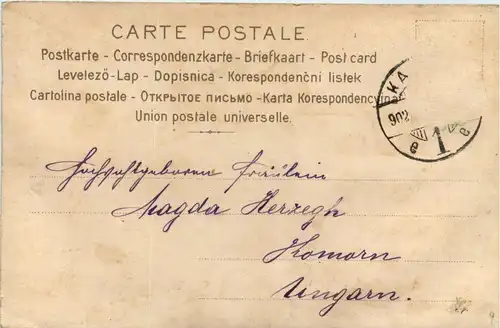 CARTE POSTALE
Postkarte - Correspondenzkarte - Briefkaart - Post card
Levelező-Lap - Dopisnica - Korespondenční listek
Cartolina postale - Открытое письмо - Karta Korespondencyjna
Union postale universelle.
KA
902
VIII
1
e e
Hochwohlgeboren Fräulein
Magda Herzegh
Komorn
Ungarn.